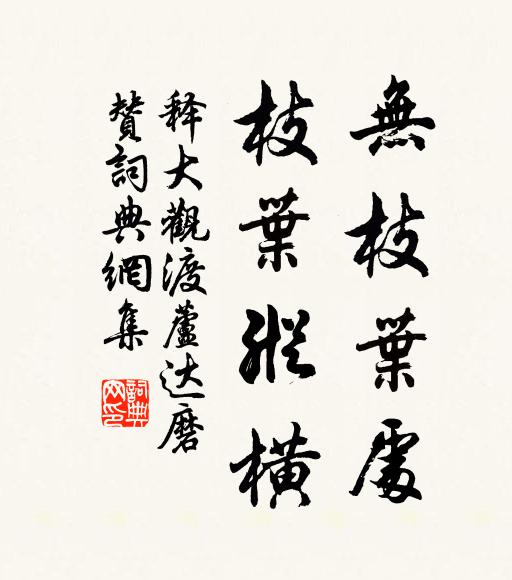 無枝葉處
枝葉縱橫
释大觀渡蘆达磨
贊詞典網集
詞典
网印